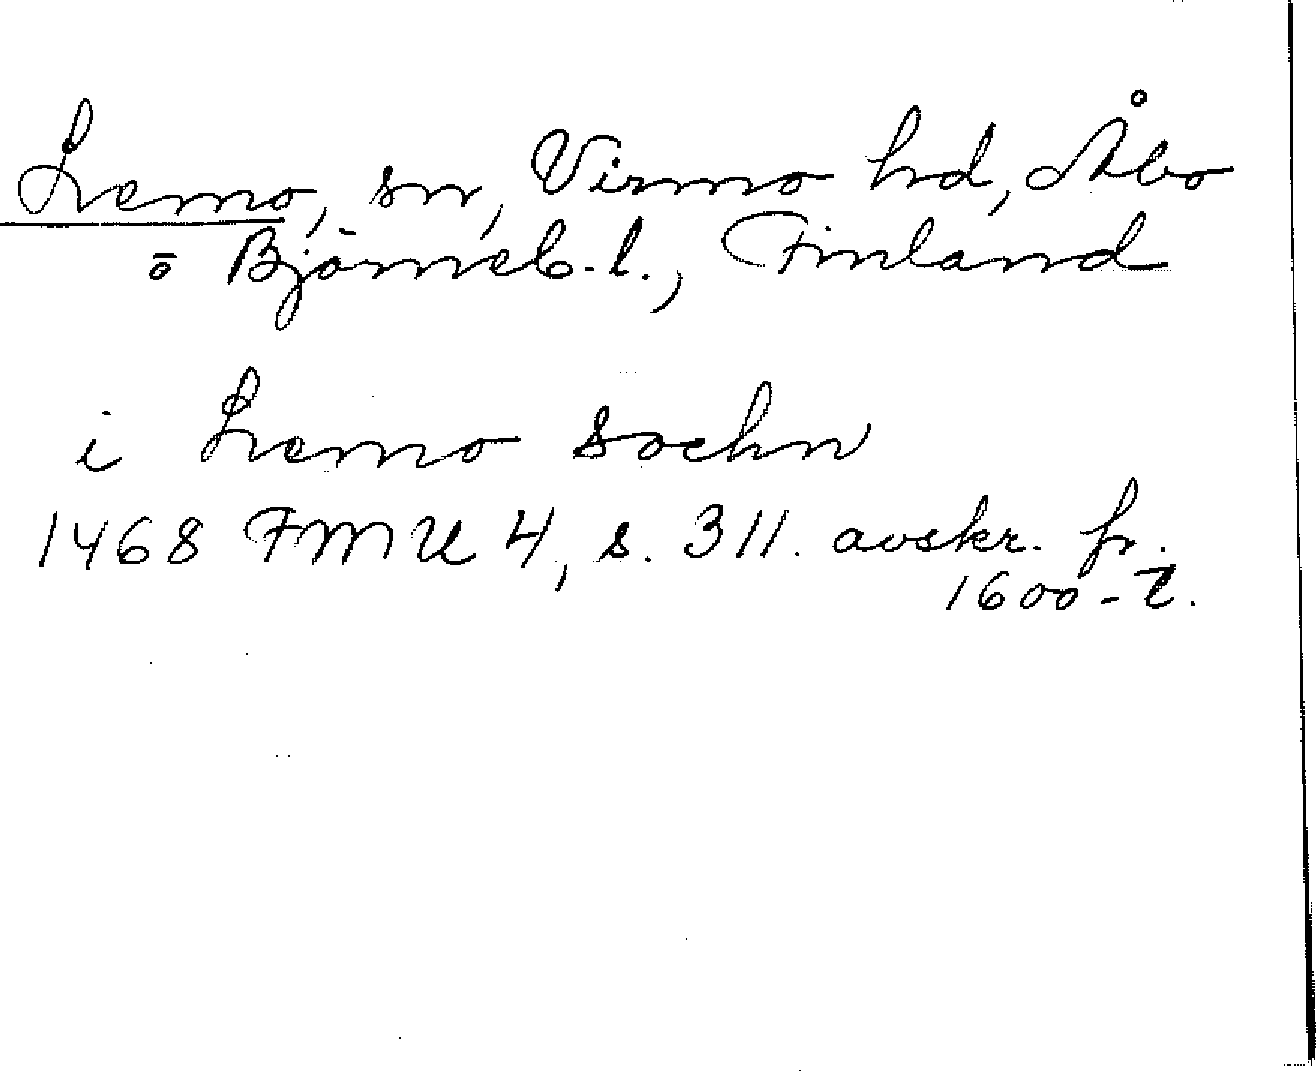 Lemo, sn, Virmo hd, Åbo
o Björneb. l., Finland
i Lemo sochn
1468 FMU 4, s. 311. avskr. fr.
1600-t.